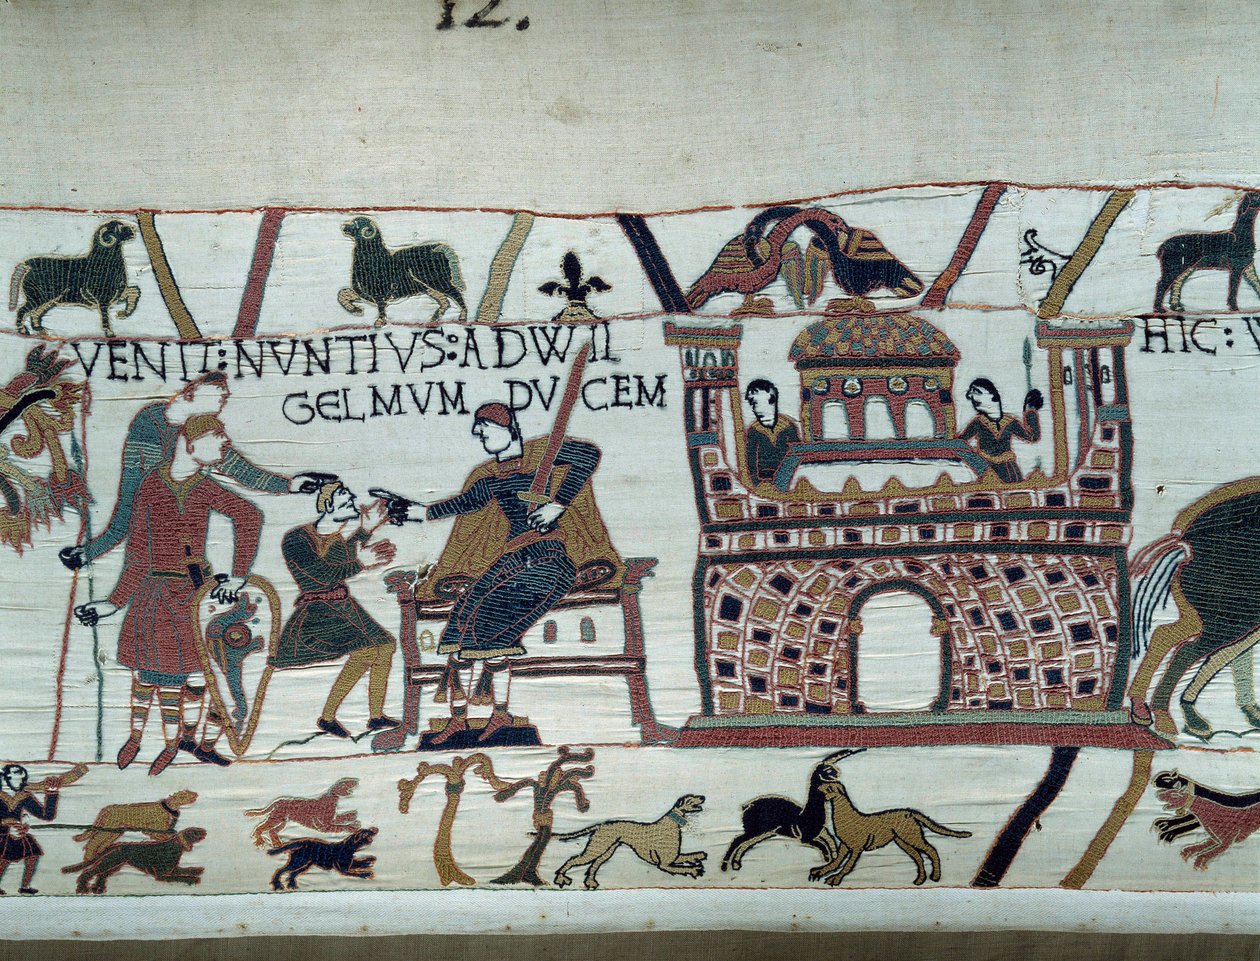 12.
VENIT:NVNTIVS:ADWIL
GELMVM DVCEM
HIC: